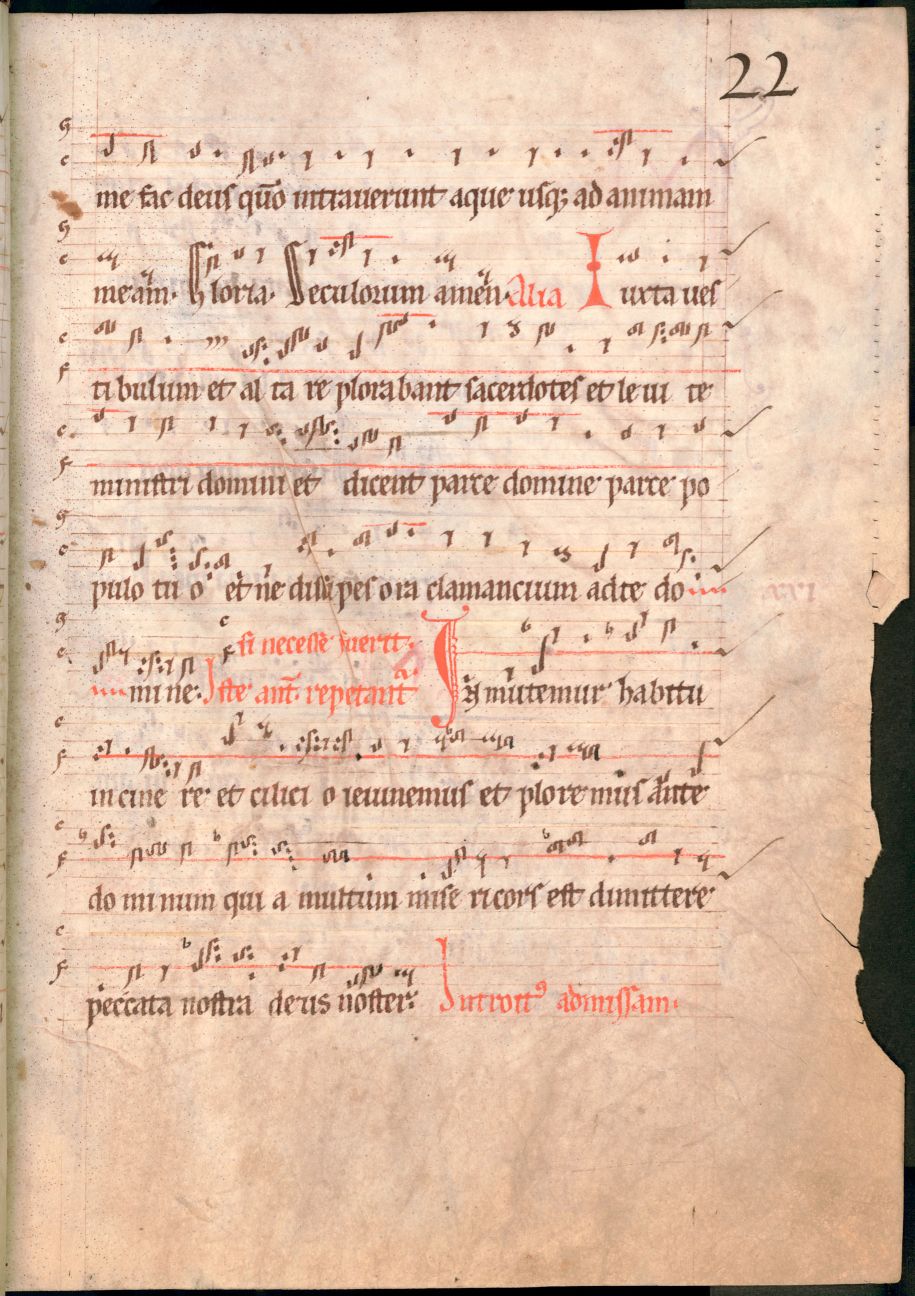 22
me fac deus quo̅ intrauerunt aque usq; ad animam
mea̅m. Gloria. Seculorum amen. Alia Iuxta ues
ti bulum et al ta re plorabant sacerdotes et le ui te
ministri domini et dicent parce domine parce po
pulo tu o et ne dissipes ora clamancium ad te do
si necesse fuerit.
mi ne. Iste ant̅. repetant̅ a̅. Inmutemur habitu
in cine re et cilici o ieiunemus et plore mus ante
do mi num qui a multum mise ricors est dimittere
peccata nostra deus noster. Introit⁹ ad missam.